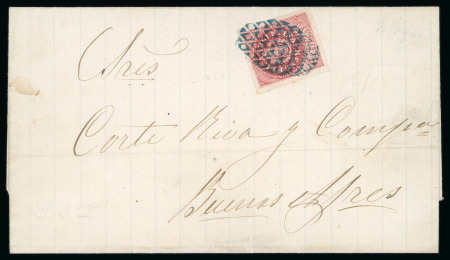 Sres
Corte Riva y Compa
Buenos Ayres